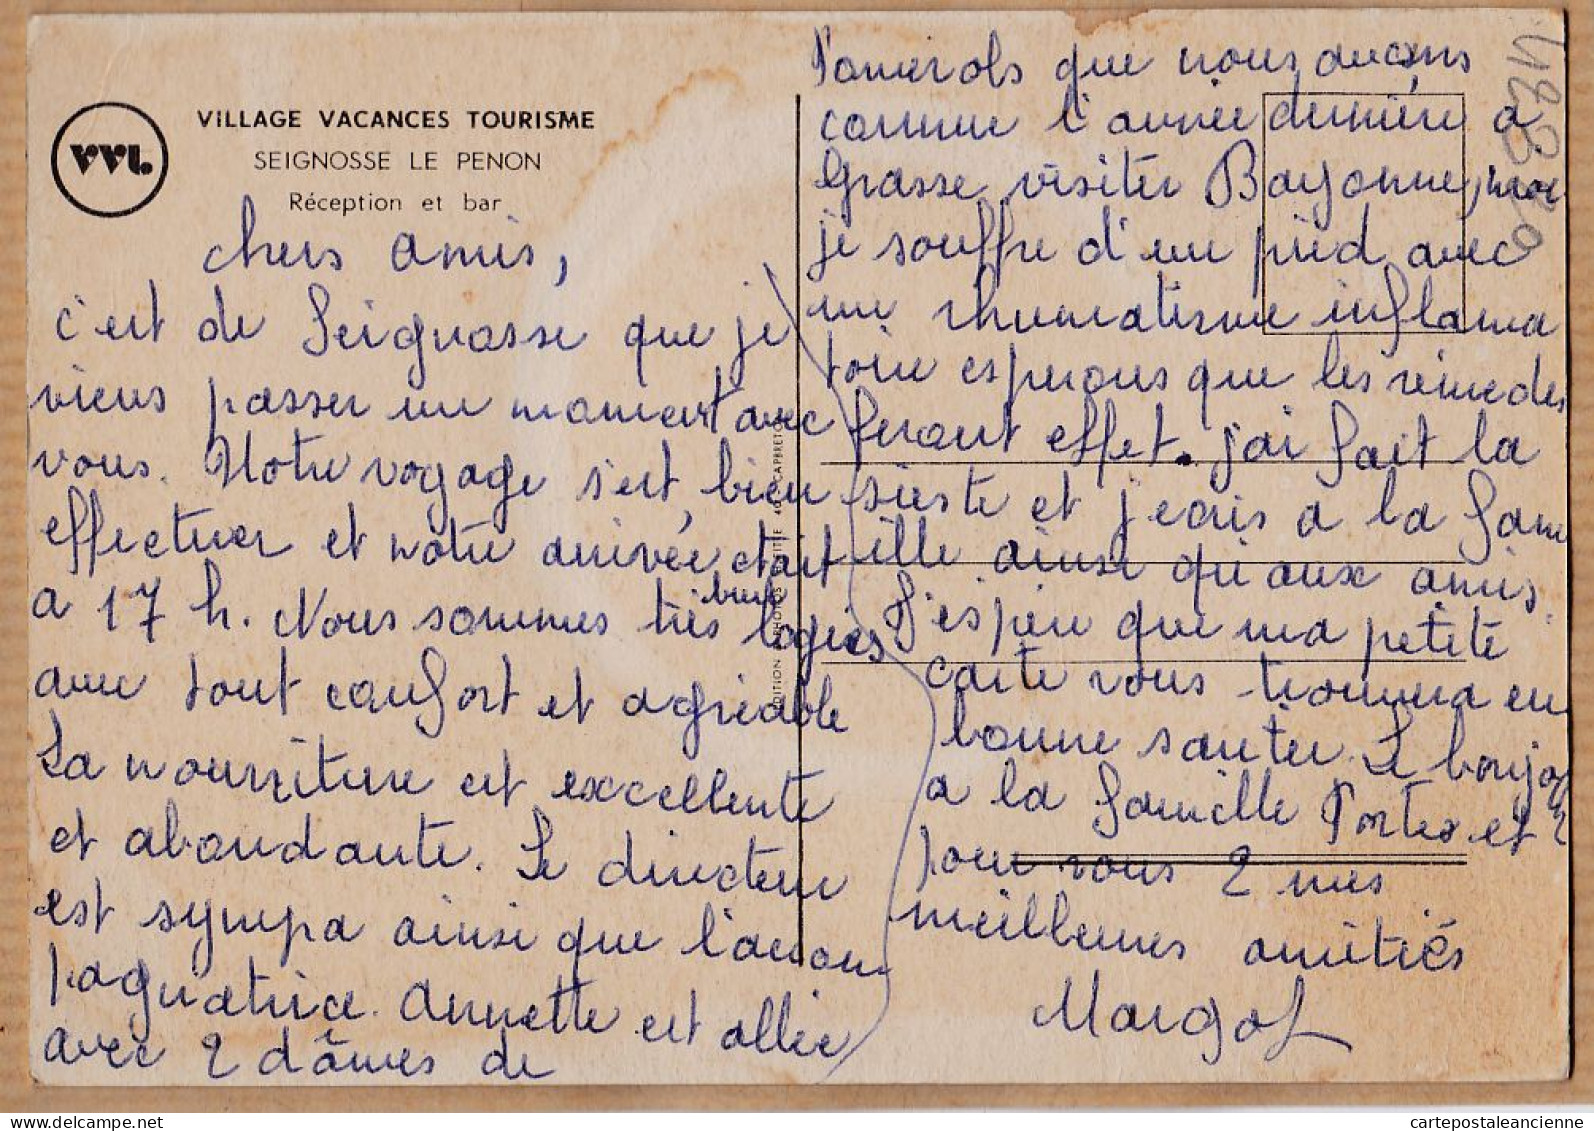 VVL
VILLAGE VACANCES TOURISME
SEIGNOSSE LE PENON
Réception et bar
chers amis,
c'est de Seignosse que je
viens passer un moment avec
vous. Notre voyage s'est bien
effectuer et notre arrivée etait
a 17 h. Nous sommes très bien logies
avec tout confort et agréable
La nourriture est excellente
et abondante. Le directeur
est sympa ainsi que l'accom
pagnatrice. Annette est allée
avec 2 dâmes de
Pomerols que nous avons
comme l'année dernière a
Grasse, visiter Bayonne, moi
je souffre d'un pied avec
un rhumatisme inflama
toire esperons que les remedes
feront effet. j'ai fait la
sieste et j'ecris a la fam
ille ainsi qu'aux amis.
J'espere que ma petite
carte vous trouvera en
bonne santer. Le bonjour
a la famille Portes et
pour vous 2 mes
meilleures amitiés
Margot
cartepostaleancienne